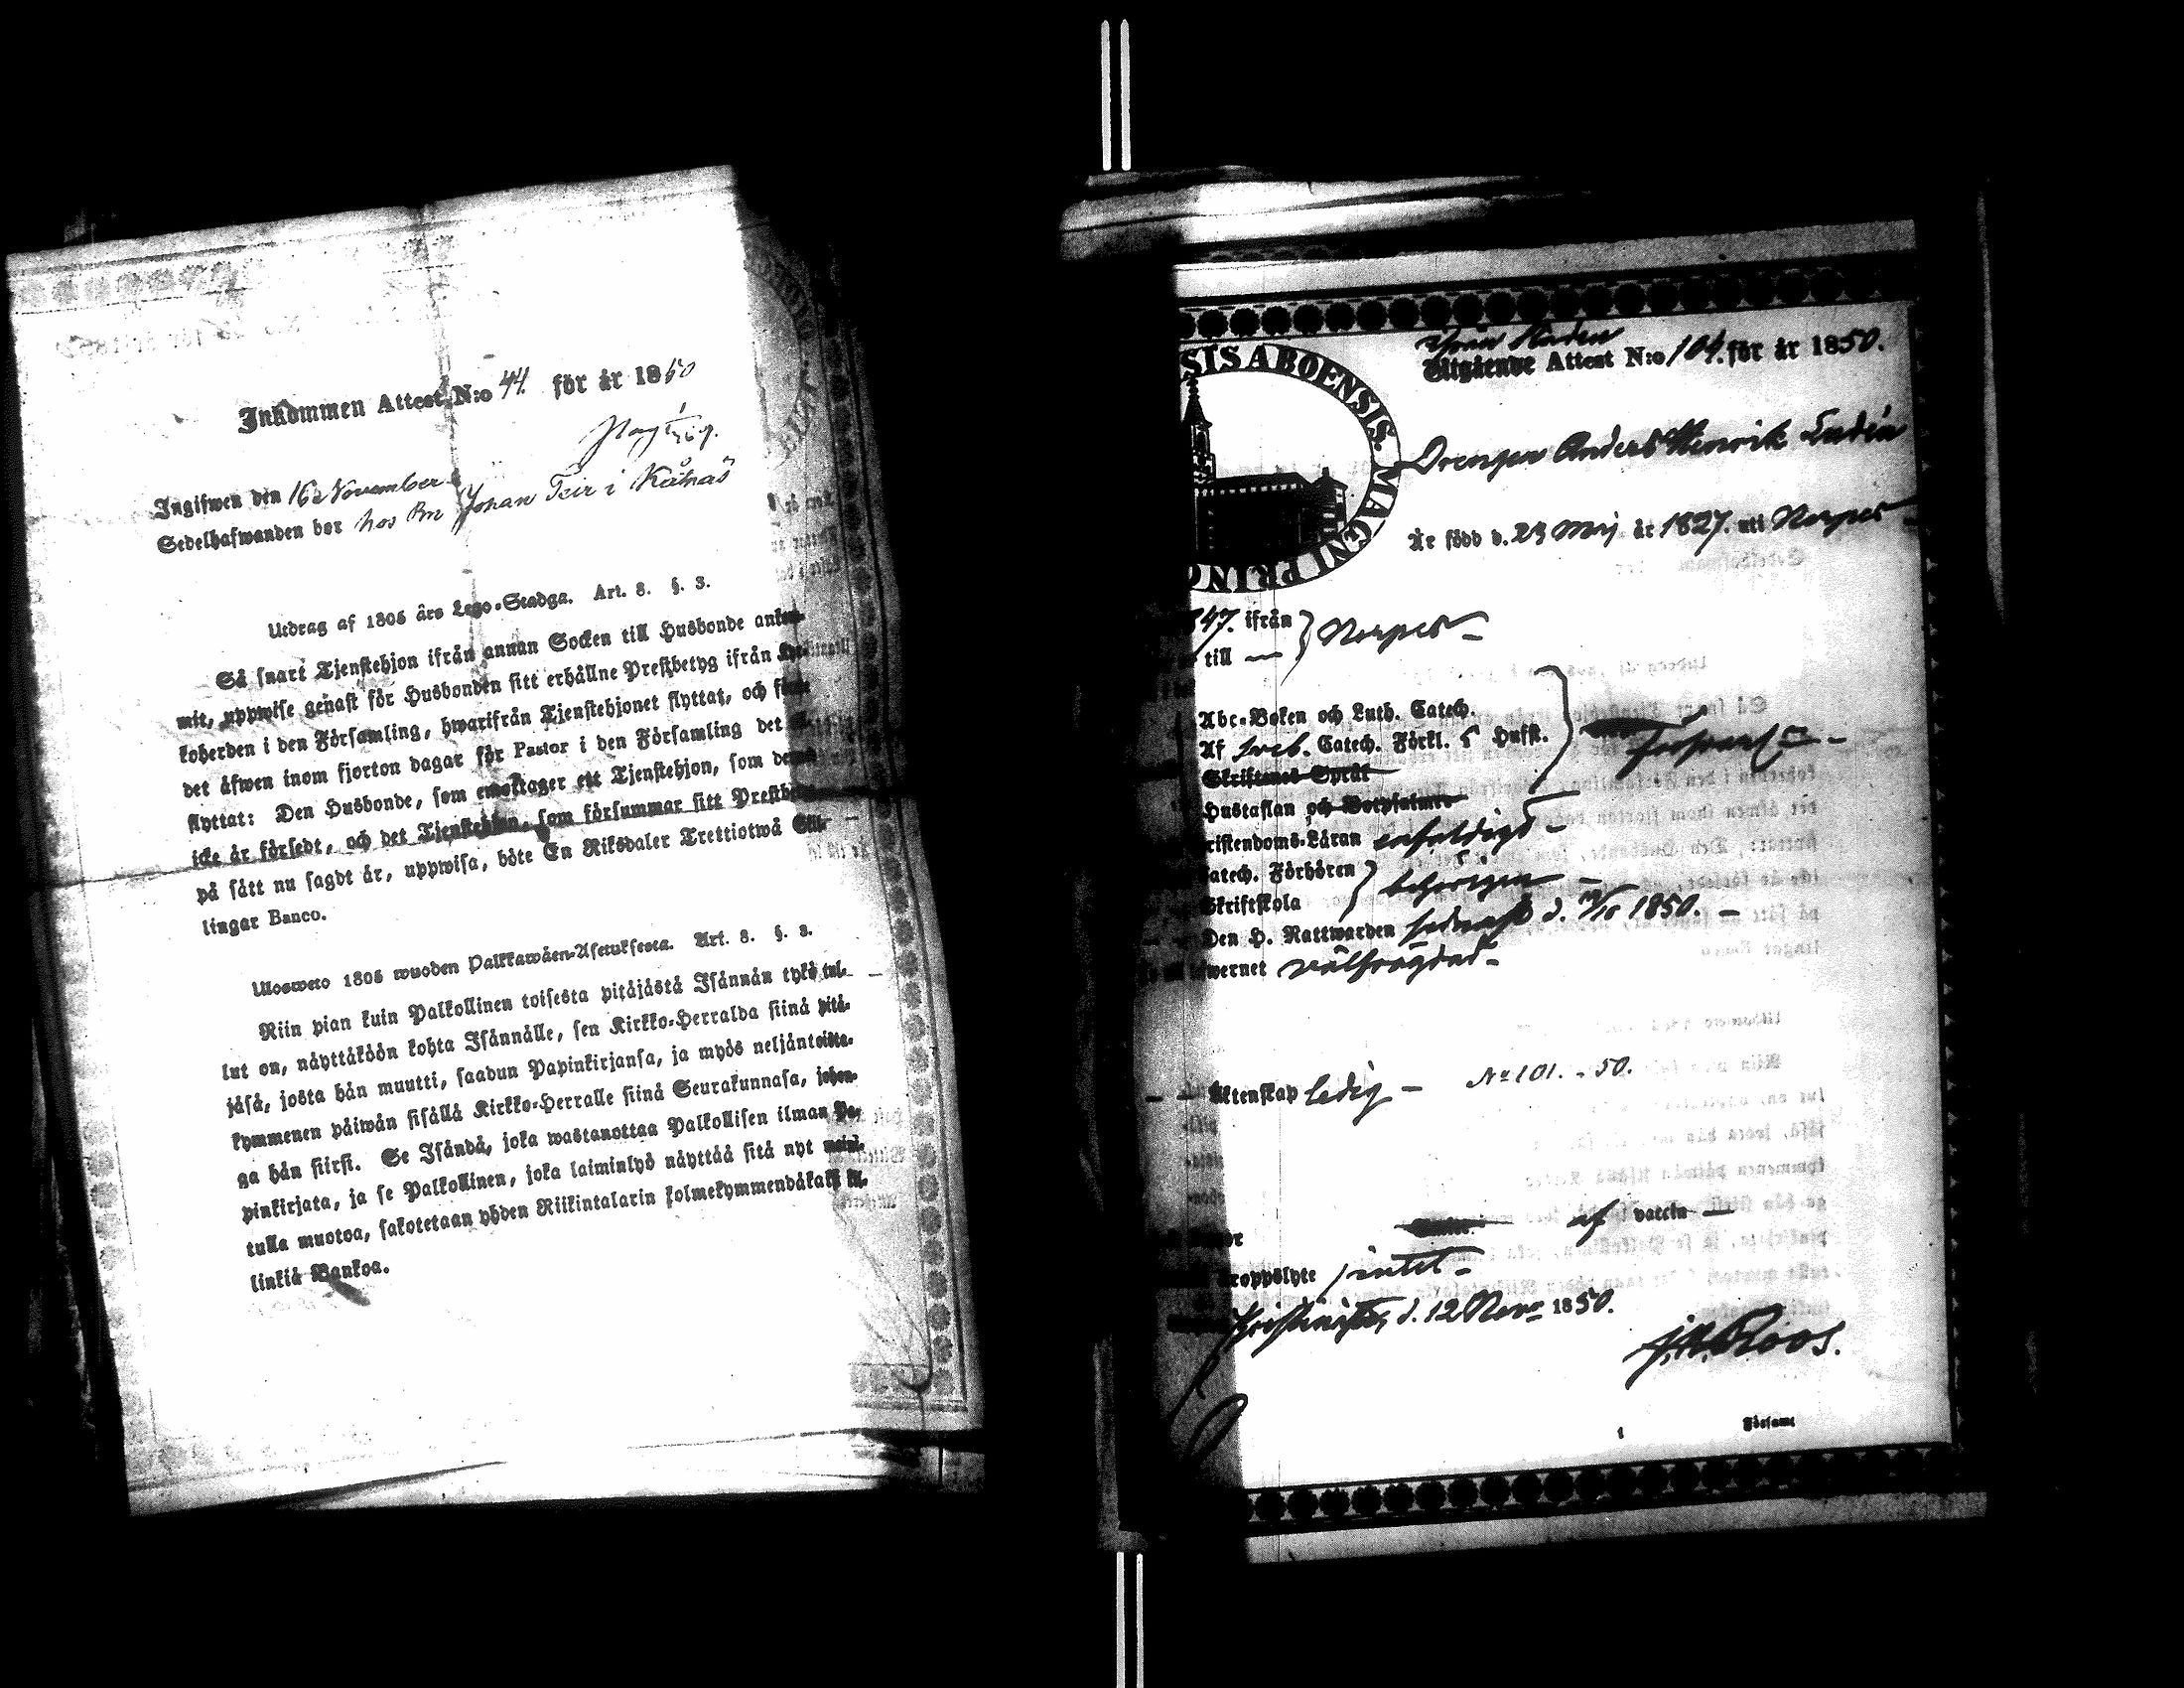 Inkommen Attest N:o 44 för år 1850
Ingifwen den 16 November
Sedelhafwanden bor hos Bn Johan Teir i Kåtnäs
Utdrag af 1805 års Lego-Stadga. Art. 8. §. 3.
Så snart Tjenstehjon ifrån annan Socken till Husbonde ankom-
mit, uppwise genast för Husbonden sitt erhållne Prestbetyg ifrån Kyr-
koherden i den Församling, hwarifrån Tjenstehjonet flyttat, och
det äfwen inom fjorton dagar för Pastor i den Församling det
flyttat: Den Husbonde, som emottager ett Tjenstehjon, som
icke är försedt, och det Tjenstehjon, som försummar sitt
på sätt nu sagdt är, uppwisa, böte En Riksdaler Trettiotwå Skil-
lingar Banco.
Ulosweto 1805 wuoden Palkkawäen-Asetuksesta. Art. 8. §. 3.
Niin pian kuin Palkollinen toisesta pitäjästä Isännän tykö tul-
lut on, näyttäköön kohta Isännälle, sen Kirkko-Herralda siinä pitä-
jäsä, josta hän muutti, saadun Papinkirjansa, ja myös neljäntoista-
kymmenen päiwän sisällä Kirkko-Herralle siinä Seurakunnasa, johon-
ga hän siirsi. Se Isändä, joka wastanottaa Palkollisen ilman Pa-
pinkirjata, ja se Palkollinen, joka laiminlyö näyttää sitä nyt maini-
tulla muotoa, sakotetaan yhden Riikintalarin kolmekymmendäkaksi kil-
linkiä Bankoa.
SIS ABOENSIS. MAGNI PRINC
från Staden
Utgående Attest N:o 104. för år 1850.
Drengen Anders Henrik
Är född d. 29 Maj år 1827. uti Nerpes
47. ifrån Nerpes
till —
Abc-Boken och Luth. Catech.
Af Catech. Förkl. Husft.
Skriftenes Språk
Hustaflan och Botpsalmer
ristendoms-Läran enfaldigt
atech. Förhören
Skriftskola behörigen
Den H. Nattwarden sednast d. 1850. —
wernet välfrägdad.
Äktenskap ledig — No 101. - 50.
af vaccin —
roppslyte intet.
Kristinestad, d. 12 Nov. 1850.
J.A. Roos.
1
Församl